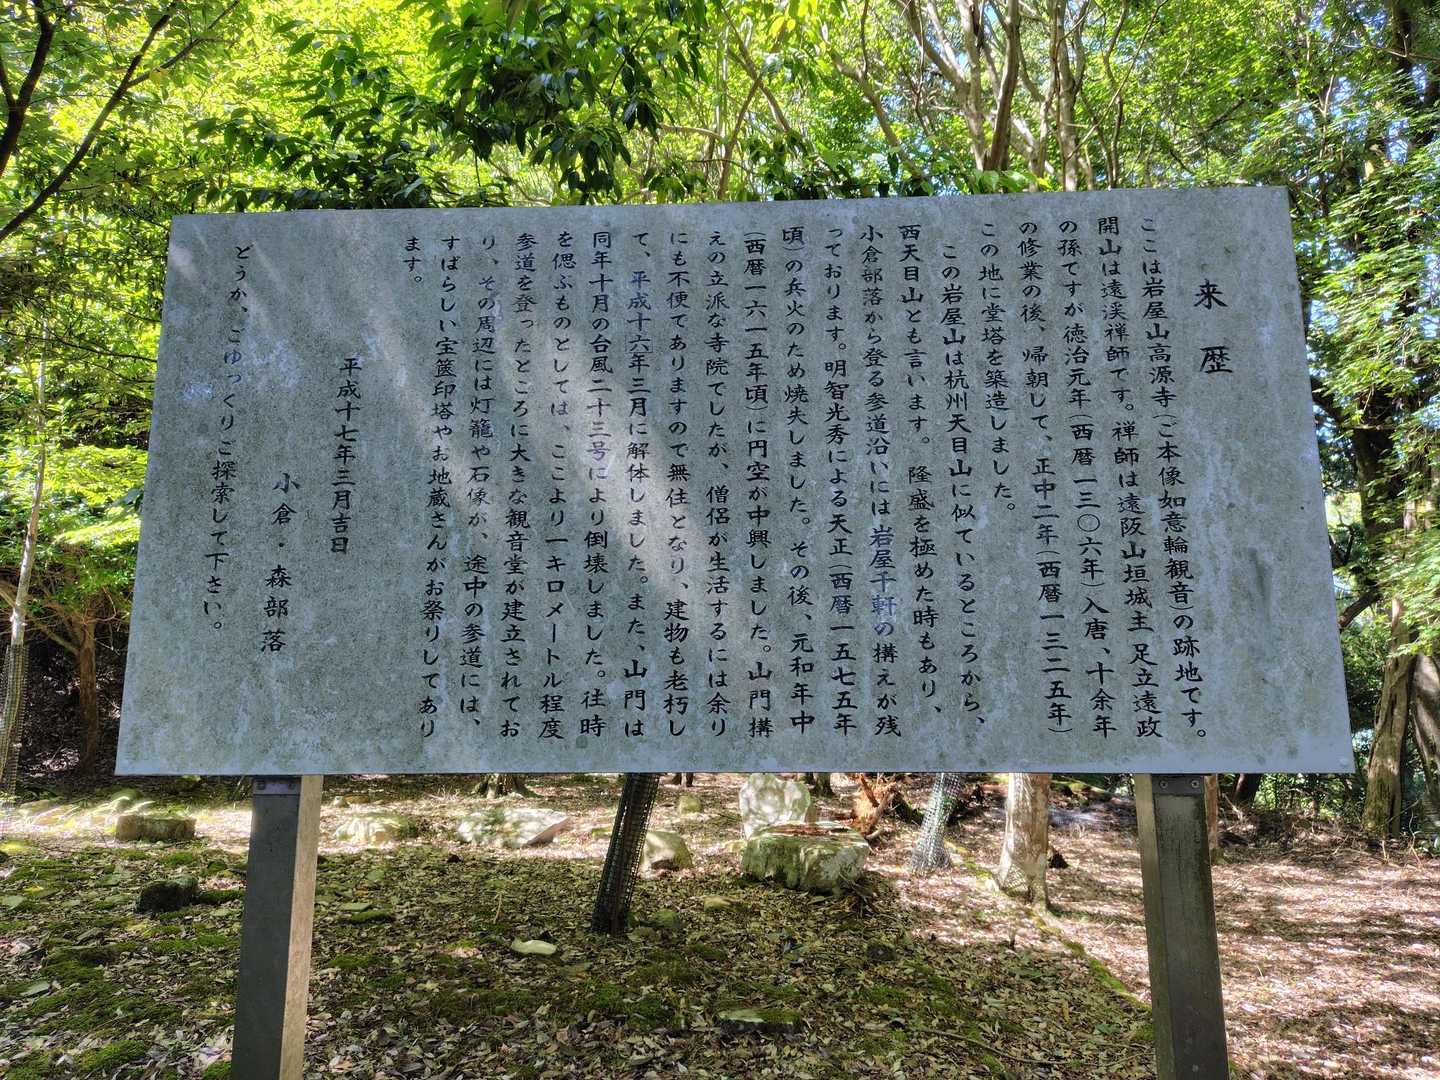 来歴
ここは岩屋山高源寺(ご本像如意輪観音)の跡地です。
開山は遠渓禅師です。禅師は遠阪山垣城主足立遠政
の孫てすが徳治元年(西暦一三〇六年)入唐、十余年
の修業の後、帰朝して、正中二年(西暦一三二五年)
この地に堂塔を築造しました。
この岩屋山は杭州天目山に似ているところから、
西天目山とも言います。隆盛を極めた時もあり、
小倉部落から登る参道沿いには岩屋千軒の構えが残
っております。明智光秀による天正(西暦一五七五年
頃)の兵火のため焼失しました。その後、元和年中
(西暦一六一五年頃)に円空が中興しました。山門構
えの立派な寺院てしたが、僧侶が生活するには余り
にも不便てありますので無住となり、建物も老朽し
て、平成十六年三月に解体しました。また、山門は
同年十月の台風二十三号により倒壊しました。往時
を偲ぶものとしては、ここより一キロメートル程度
参道を登ったところに大きな観音堂が建立されてお
り、その周辺には灯籠や石像が、途中の参道には、
すばらしい宝篋印塔やお地蔵さんがお祭りしてあり
ます。
平成十七年三月吉日
小倉・森部落
どうか、ごゆっくりご探索して下さい。